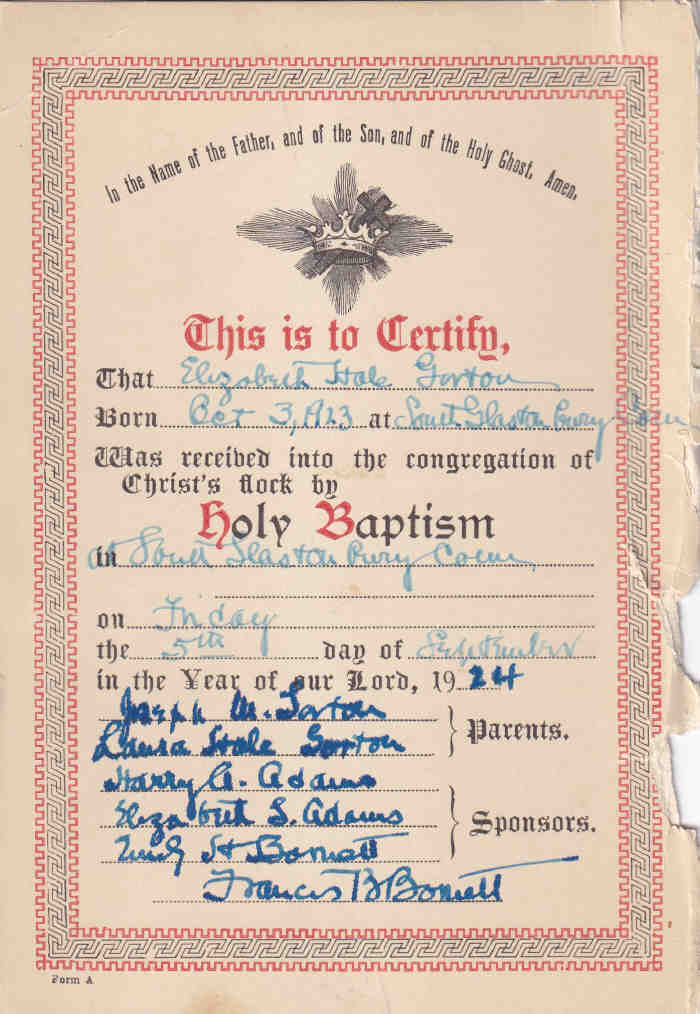 In the Name of the Father, and of the Son, and of the Holy Ghost. Amen.
This is to Certify,
That Elizabeth Hale Gorton
Born Oct 3, 1923 at South Glastonbury Conn
Was received into the congregation of
Christ's flock by
Holy Baptism
in South Glastonbury Conn,
on Friday
the 5th day of September
in the Year of our Lord, 1924
Joseph W. Gorton
Laura Hale Gorton
Parents.
Harry A. Adams
Elizabeth S. Adams
Sponsors.
Emily H
Francis B
Form A